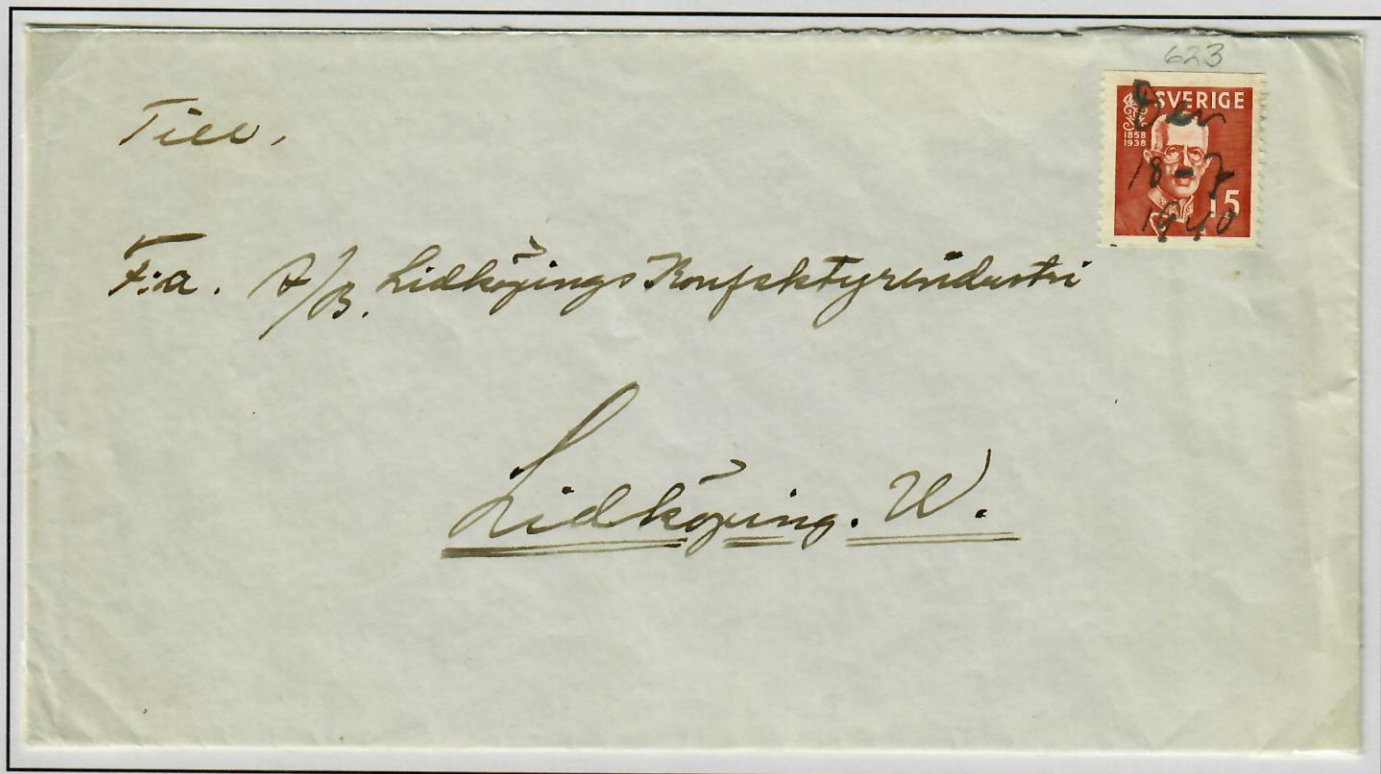 623
SVERIGE
1858
1938
Den
18-7
1940
15
Till,
F:a. A/B. Lidköpings Konfektyrindustri
Lidköping. W.